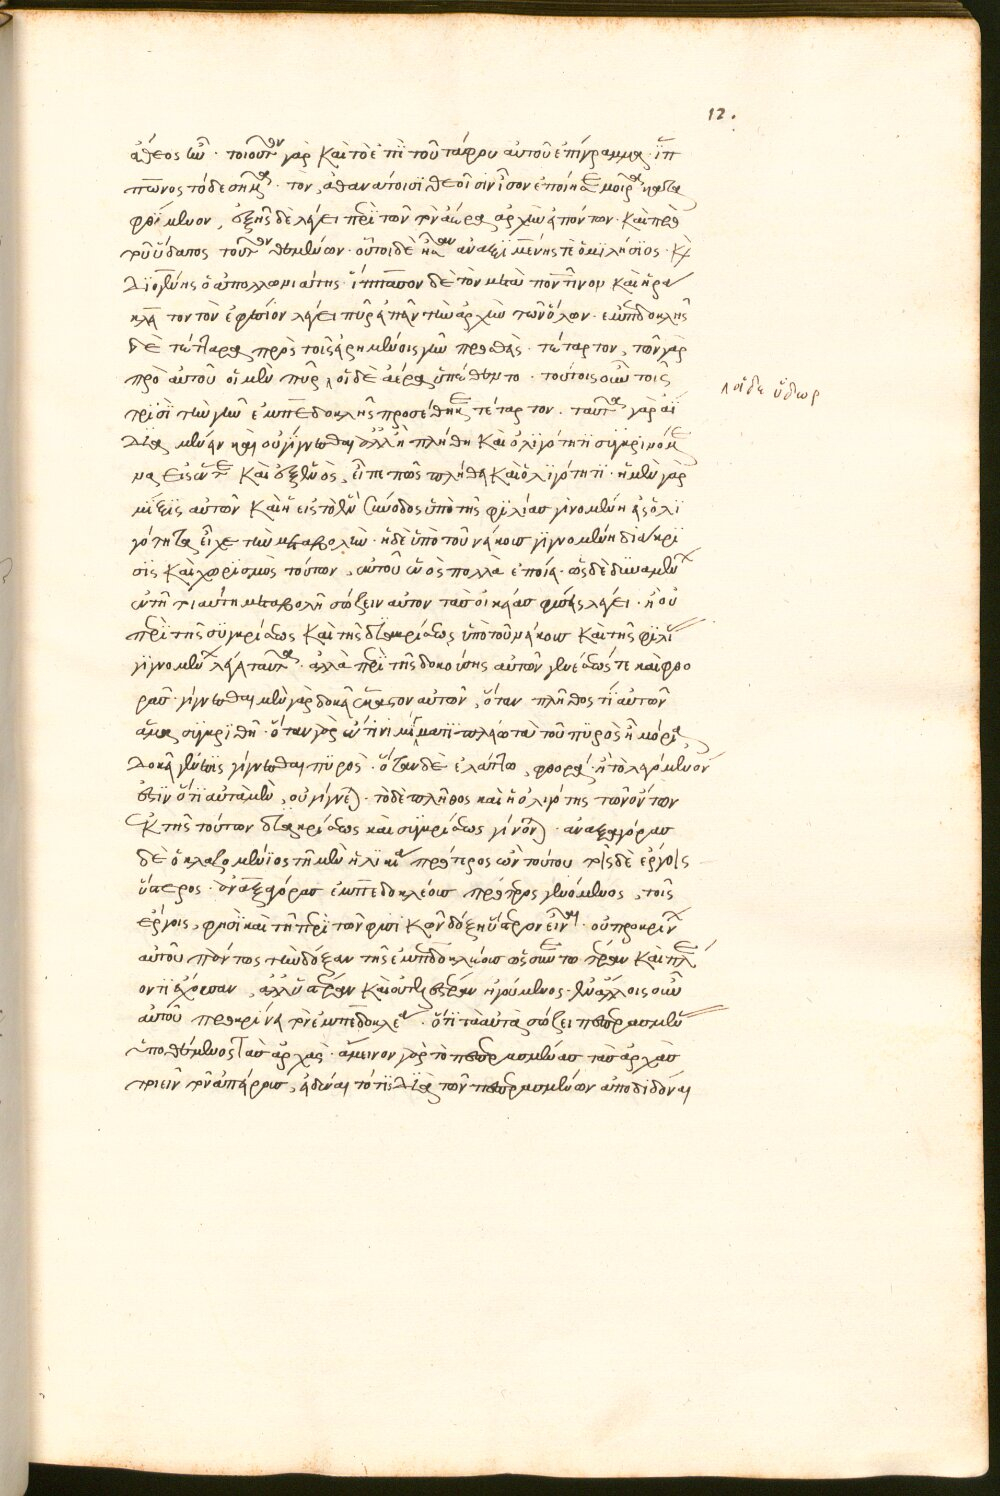 12.
ἄθεος ἦν· τοιοῦτον γὰρ καὶ τὸ ἐπὶ τοῦ τάφου αὐτοῦ ἐπίγραμμα· ἵπ
πωνος τόδε σῆμα· τὸν ἀθανάτοισι θεοῖσιν ἶσον ἐποίησε μοῖρα κατα
φθίμενον, ἑξῆς δὲ λέγει περὶ τῶν τὸν ἀέρα ἀρχὴν εἰπόντων· καὶ πρὸ
τοῦ ὕδατος τοῦτον θεμένων· οὗτοι δὲ ἦσαν ἀναξιμένης τε ὁ μιλήσιος· κὶ
διογένης ὁ ἀπολλωνιάτης· ἵππασον δὲ τὸν μεταποντῖνον καὶ ἡρά
κλειτον τὸν ἐφέσιον λέγει πῦρ εἰπεῖν τὴν ἀρχὴν τῶν ὅλων· ἐμπεδοκλῆς
δὲ τέτταρα πρὸς τοῖς εἰρημένοις γῆν προσθεὶς· τέταρτον, τῶν γὰρ
πρὸ αὐτοῦ οἱ μὲν πῦρ, οἱ δὲ ἀέρα ὑπέθεντο· τούτοις οὖν τοῖς
λ οἱ δὲ ὕδωρ
τρισὶ τὴν γῆν ἐμπεδοκλῆς προσέθηκε τέταρτον· ταῦτα γὰρ ἀεὶ
διαμένειν καὶ οὐ γίγνεσθαι ἀλλ' ἢ πλήθει καὶ ὀλιγότητι συγκρινόμε
να εἰς ἕν τε καὶ ἐξ ἑνὸς, εἶπε πῶς πλήθει καὶ ὀλιγότητι· ἡ μὲν γὰρ
μίξις αὐτῶν καὶ ἡ εἰς τὸ ἓν σύνοδος ὑπὸ τῆς φιλίας γινομένη εἰς ὀλι
γότητα εἶχε τὴν μεταβολὴν· ἡ δὲ ὑπὸ τοῦ νείκους γιγνομένη διάκρι
σις καὶ χωρισμὸς τούτων, ἐκ τοῦ ἑνὸς πολλὰ ἐποίει· ὡς δὲ δυναμένου
ἐν τῇ τοιαύτῃ μεταβολῇ σώζειν αὐτὸν τὰς οἰκείας φύσεις λέγει· ἢ οὐ
περὶ τῆς συγκρίσεως καὶ τῆς διακρίσεως ὑπὸ τοῦ νείκους καὶ τῆς φιλί
γιγνομένου λέγει ταῦτα· ἀλλὰ περὶ τῆς δοκούσης αὐτῶν γενέσεώς τε καὶ φθο
ρᾶς· γίγνεσθαι μὲν γὰρ δοκεῖ ἕκαστον αὐτῶν, ὅταν πλῆθος τι αὐτῶν
ἅμα συγκριθῇ· ὅταν γὰρ ἔν τινι μίγματι πλείω τὰ τοῦ πυρὸς ᾖ μόρια,
δοκεῖ γένεσις γίγνεσθαι πυρὸς· ὅταν δὲ ἐλάττω, φθορά· ἢ τὸ λεγόμενον
ἐστιν ὅτι αὐτὰ μὲν, οὐ γίγνεται· τὸ δὲ πλῆθος καὶ ἡ ὀλιγότης τῶν ὄντων
ἐκ τῆς τούτων διακρίσεως καὶ συγκρίσεως γίνονται· ἀναξαγόρας
δὲ ὁ κλαζομένιος τῇ μὲν ἡλικίᾳ πρότερος ὢν τούτου τοῖς δὲ ἔργοις
ὕστερος· ἀναξαγόρας ἐμπεδοκλέους πρότερος γενόμενος, τοῖς
ἔργοις, φησὶ καὶ τῇ περὶ τῶν φυσικῶν δόξῃ ὕστερον εἶναι· οὐ προκρίνων
αὐτοῦ πάντως τὴν δόξαν τῆς ἐμπεδοκλέους ὡς συνετωτέραν καὶ πλέ
ον τι ἔχουσαν, ἀλλ' ὑστέραν καὶ εὐτελεστέραν ἡγούμενος· ἐν ἄλλοις οὖν
αὐτοῦ προκρίνει τὸν ἐμπεδοκλέα· ὅτι τὰ αὐτὰ σώζει πεπερασμένας
ὑποθέμενος τὰς ἀρχὰς· ἄμεινον γὰρ τὸ πεπερασμένας τὰς ἀρχὰς
ποιεῖν τοῦ ἀπείρους, εἰ δύναιτό τις διὰ τῶν πεπερασμένων ἀποδιδόναι